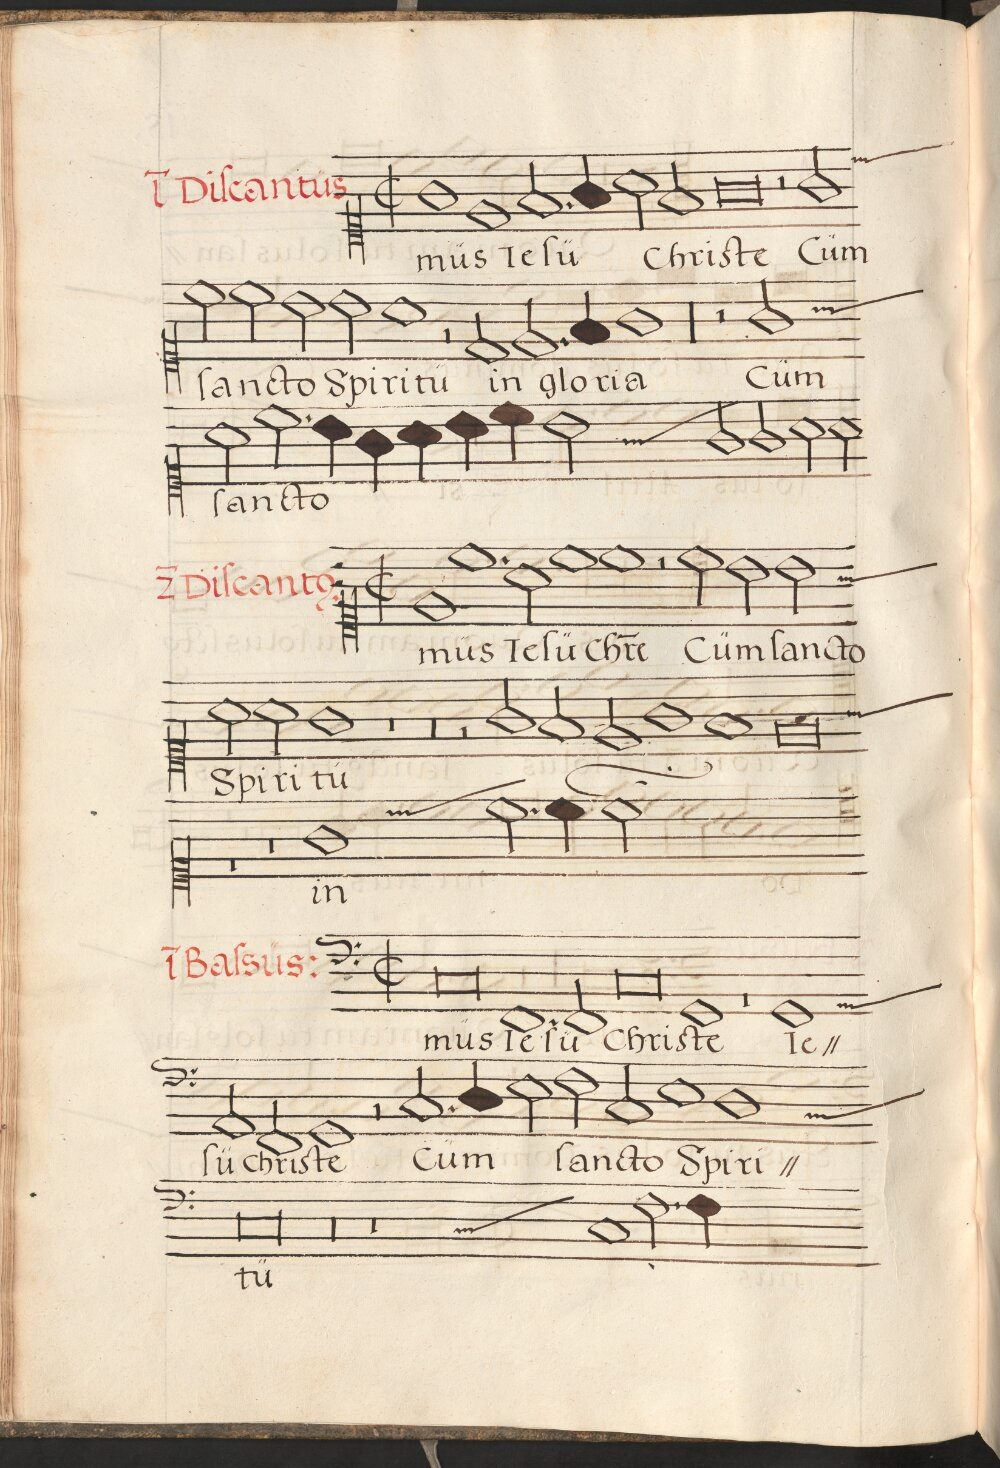 1 Discantus
mus Iesu Christe Cum
sancto Spiritu in gloria Cum
sancto
2 Discantꝰ
mus Iesu Chr̄e Cum sancto
Spiritu
in
1 Bassus:
mus Iesu Christe Ie//
su Christe Cum sancto Spiri//
tu